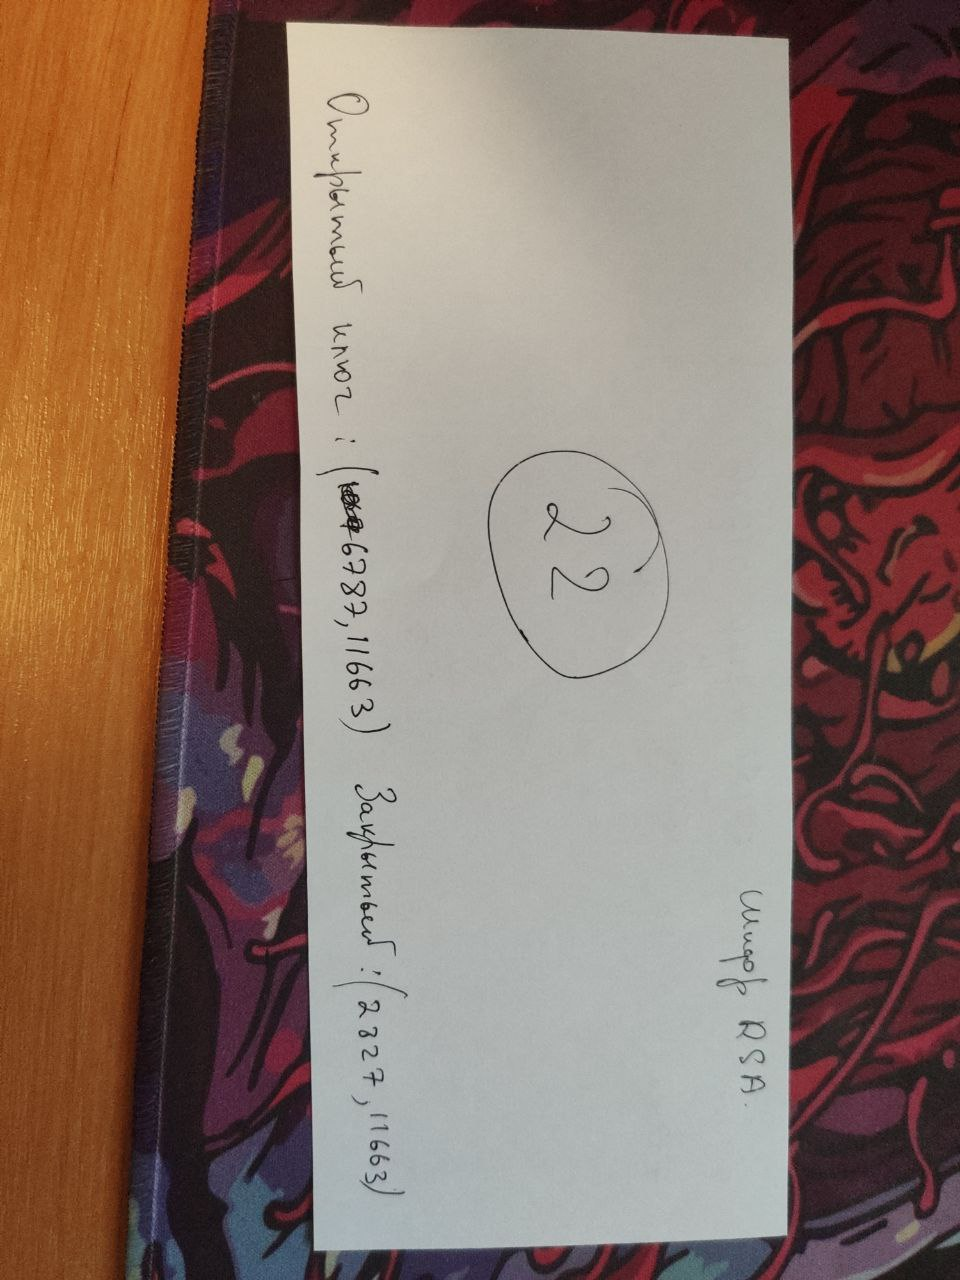 Шифр RSA.
22
Открытый ключ: (6787, 11663) Закрытый: (2827, 11663)